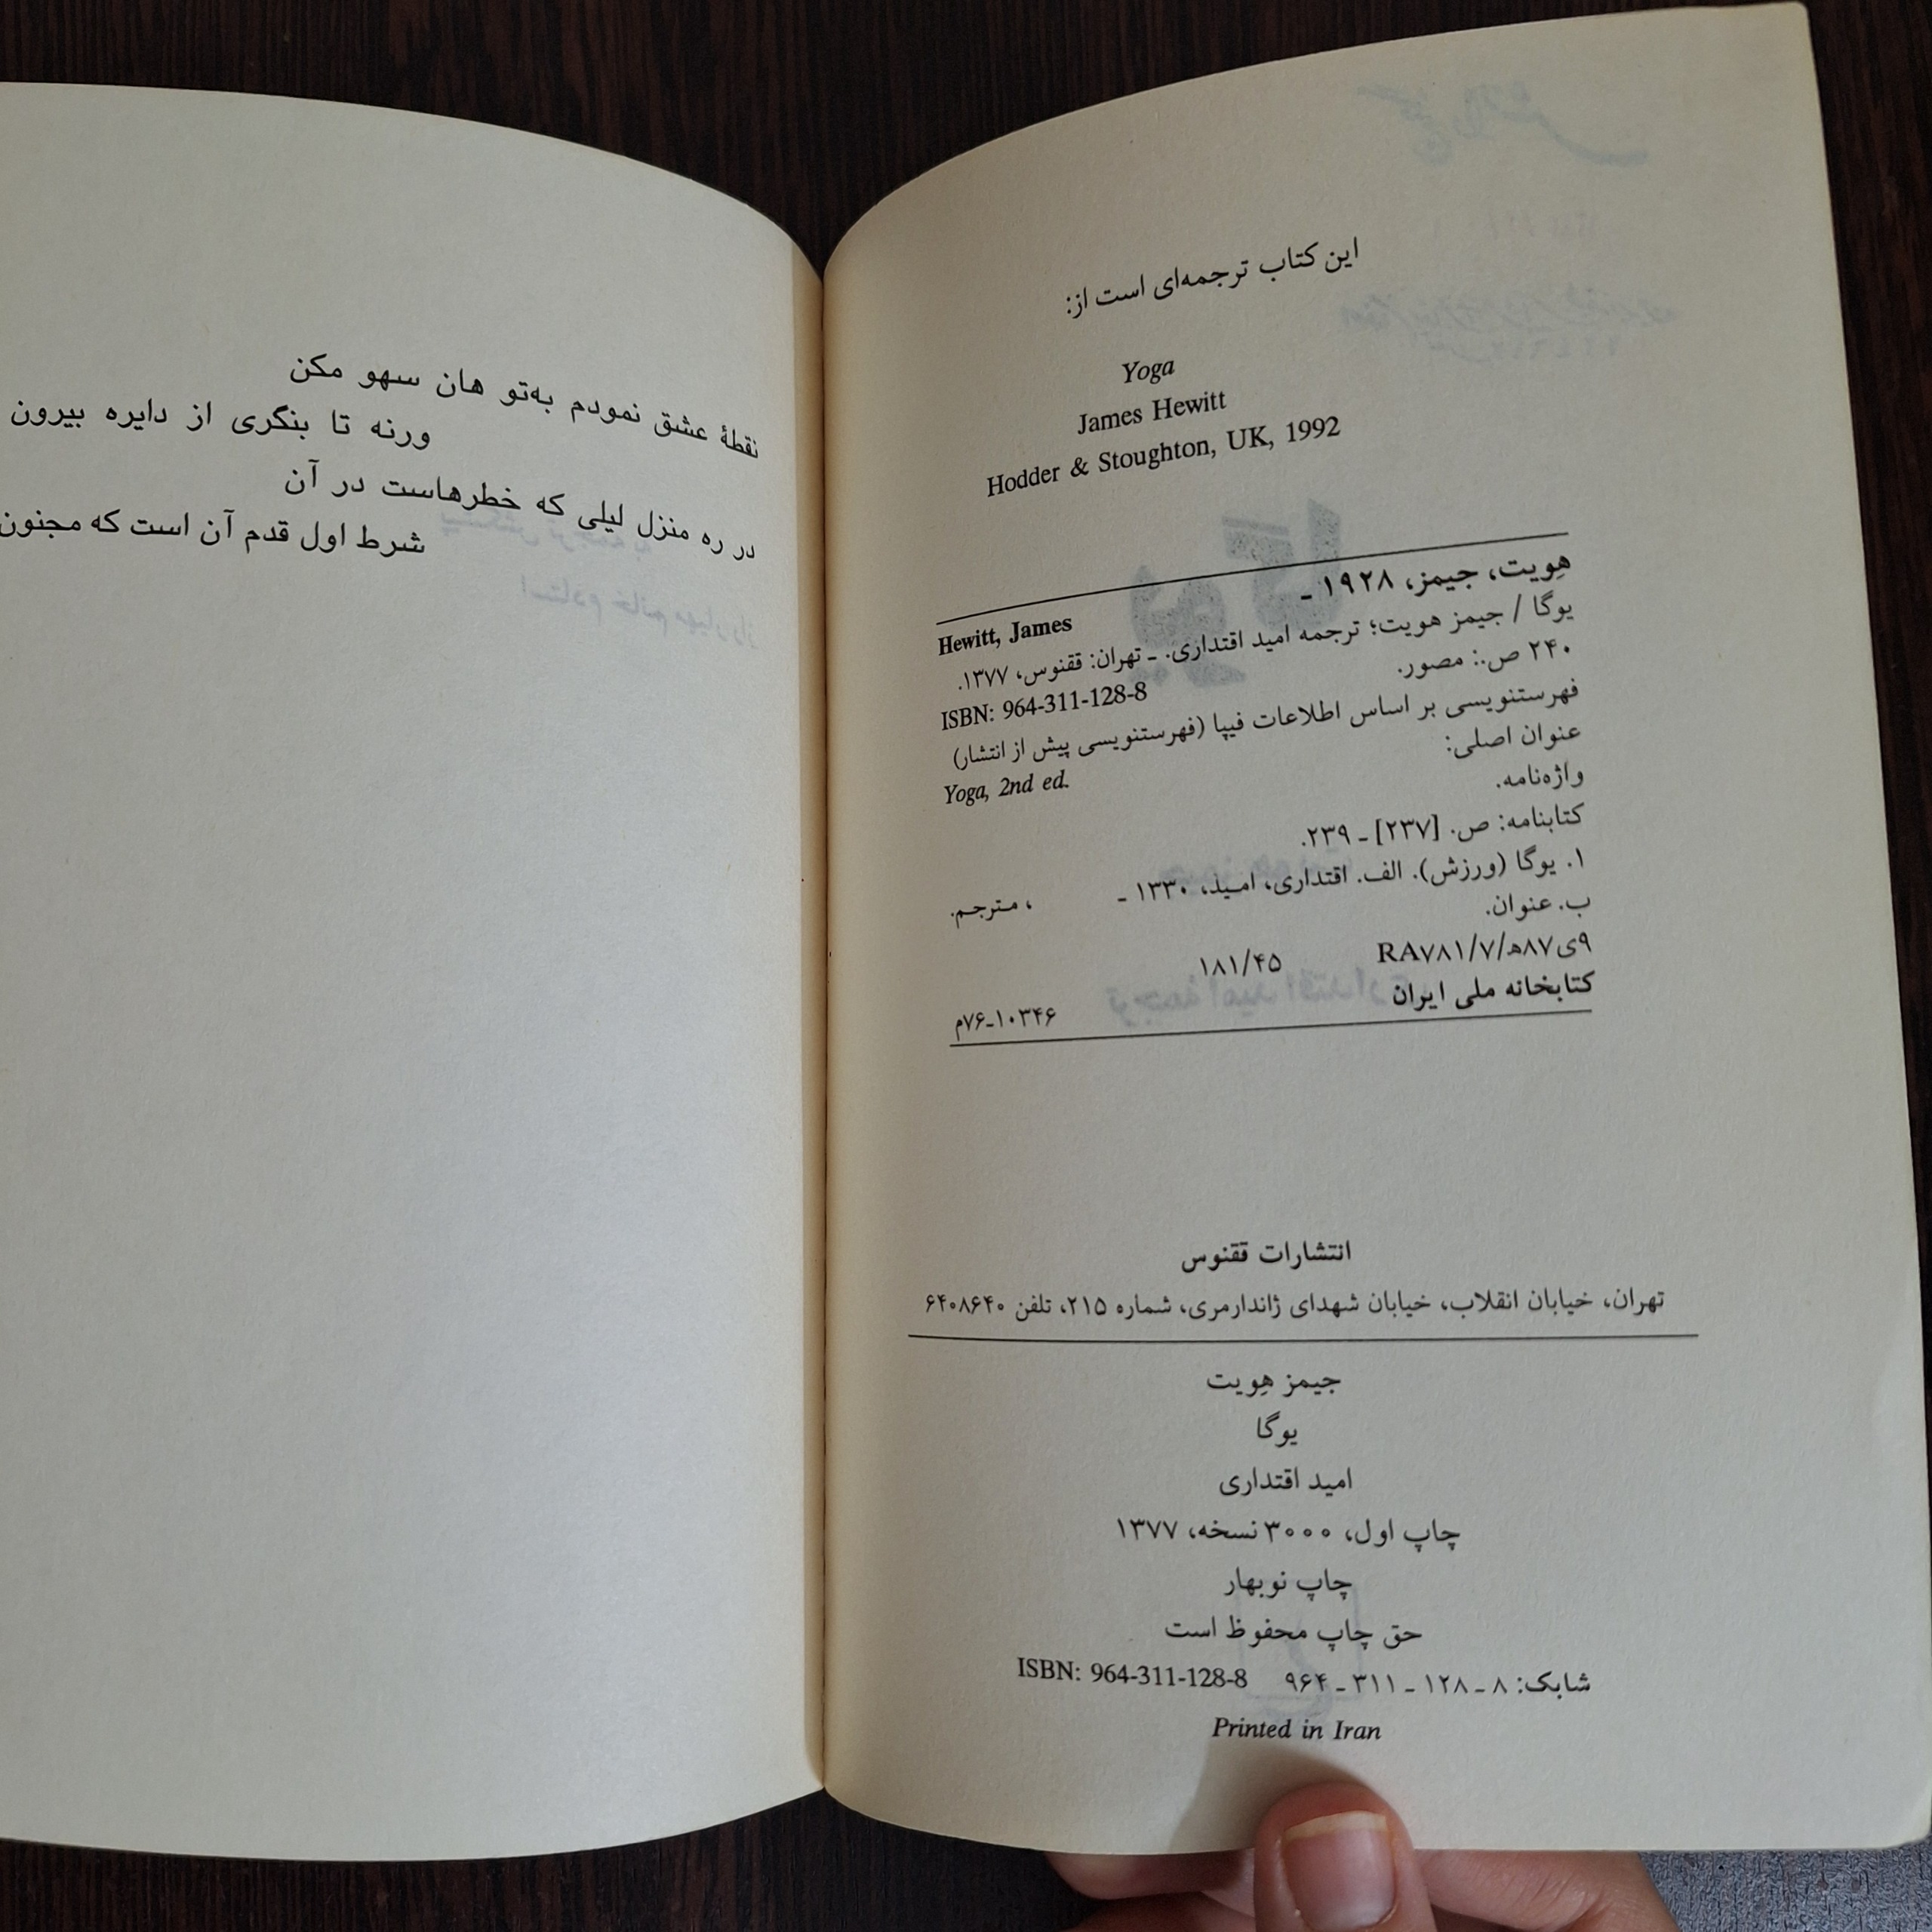 این کتاب ترجمه‌ای است از:
Yoga
James Hewitt
Hodder & Stoughton, UK, 1992
هِویت، جیمز، ۱۹۲۸ ـ
Hewitt, James
یوگا / جیمز هویت؛ ترجمه امید اقتداری. ـ تهران: ققنوس، ۱۳۷۷.
۲۴۰ ص.: مصور.
ISBN: 964-311-128-8
فهرستنویسی بر اساس اطلاعات فیپا (فهرستنویسی پیش از انتشار)
عنوان اصلی:
Yoga, 2nd ed.
واژه‌نامه.
کتابنامه: ص. [۲۳۷] ـ ۲۳۹.
۱. یوگا (ورزش). الف. اقتداری، امید، ۱۳۳۰ ـ ، مترجم.
ب. عنوان.
۹ی۸۷ه/۷/RA۷۸۱ ۱۸۱/۴۵
کتابخانه ملی ایران ۱۰۳۴۶ـ۷۶م
انتشارات ققنوس
تهران، خیابان انقلاب، خیابان شهدای ژاندارمری، شماره ۲۱۵، تلفن ۶۴۰۸۶۴۰
جیمز هِویت
یوگا
امید اقتداری
چاپ اول، ۳۰۰۰ نسخه، ۱۳۷۷
چاپ نوبهار
حق چاپ محفوظ است
شابک: ۸ ـ ۱۲۸ ـ ۳۱۱ ـ ۹۶۴ ISBN: 964-311-128-8
Printed in Iran
نقطهٔ عشق نمودم به‌تو هان سهو مکن
ورنه تا بنگری از دایره بیرون
در ره منزل لیلی که خطرهاست در آن
شرط اول قدم آن است که مجنون